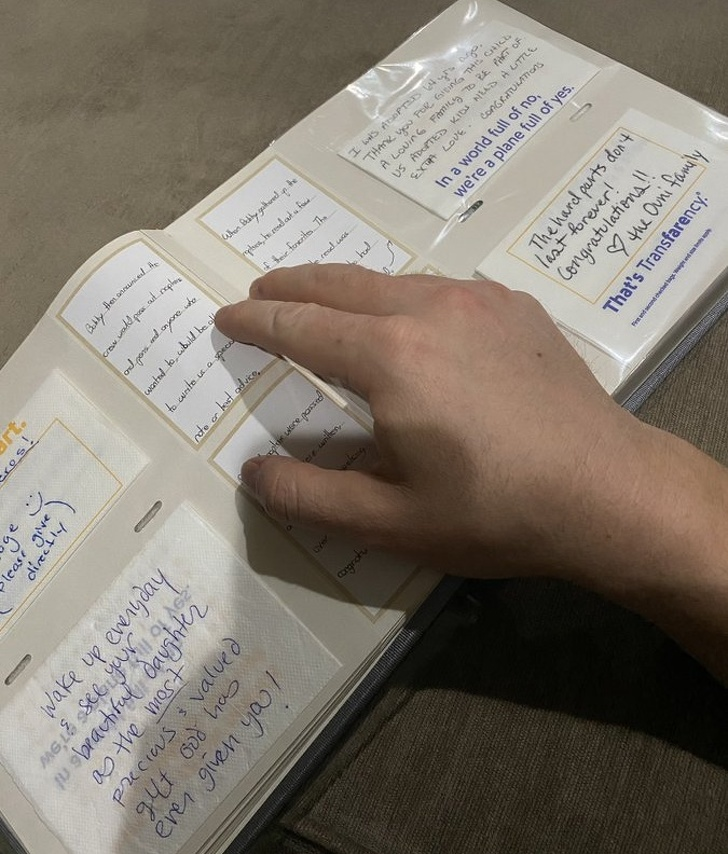 I WAS ADOPTED 64 yrs ago.
THANK YOU FOR GIVING THIS CHILD
A LOVING FAMILY TO BE PART OF.
US ADOPTED KIDS NEED A LITTLE
EXTRA LOVE. CONGRATULATIONS
In a world full of no,
we're a plane full of yes.
The hard parts don't
last forever!
Congratulations!!
♡ the Ovni family
That's Transfarency.®
When Bobby gathered up the
he read out a few
of their favorites. The
read was
Bobby then announced the
crew would pass out napkins
and pens and anyone who
wanted to, would be
to write us a
note or best advice.
were passed
were written
over
congratu
art.
(Please give
directly)
Wake up everyday
& see your
beautiful daughter
as the most
precious & valued
gift God has
ever given you!